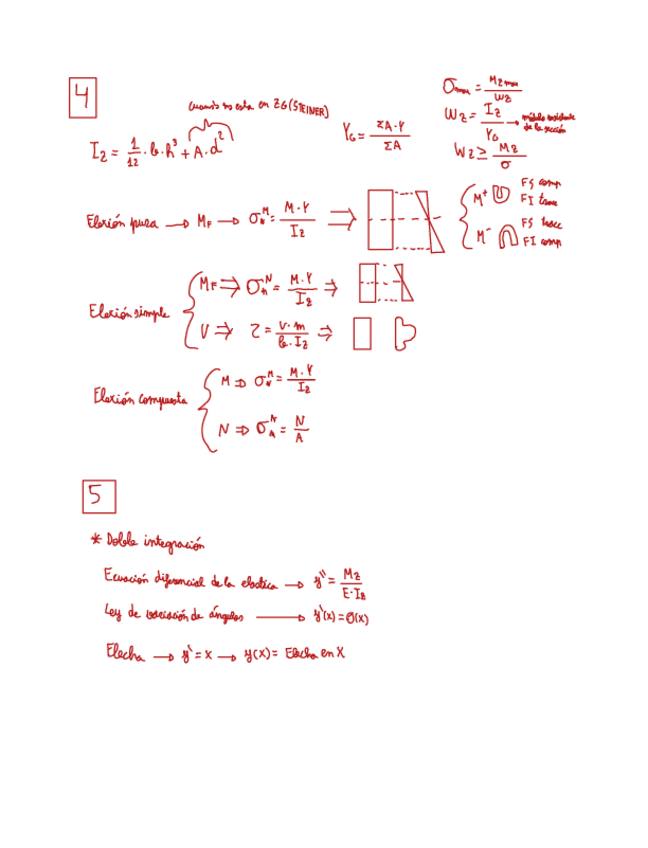 4
cuando no esta en ZG (STEINER)
I_z = 1/12 · b · h³ + A · d²
Y_G = ΣA·Y / ΣA
σ_max = M_z max / W_z
W_z = I_z / Y_G → módulo resistente de la sección
W_z ≥ M_z / σ
Flexión pura → M_F → σ_n^M = M·Y / I_z ⇒
M⁺ FS comp
FI trac
M⁻ FS tracc
FI comp
Flexión simple
M_F ⇒ σ_n^N = M·Y / I_z ⇒
V ⇒ Z = V·m / b·I_z ⇒
Flexión compuesta
M ⇒ σ_n^M = M·Y / I_z
N ⇒ σ_A^N = N / A
5
* Doble integración
Ecuación diferencial de la elastica → y'' = M_z / E·I_z
Ley de variación de ángulos → y'(x) = θ(x)
Flecha → y' = x → y(x) = Flecha en X